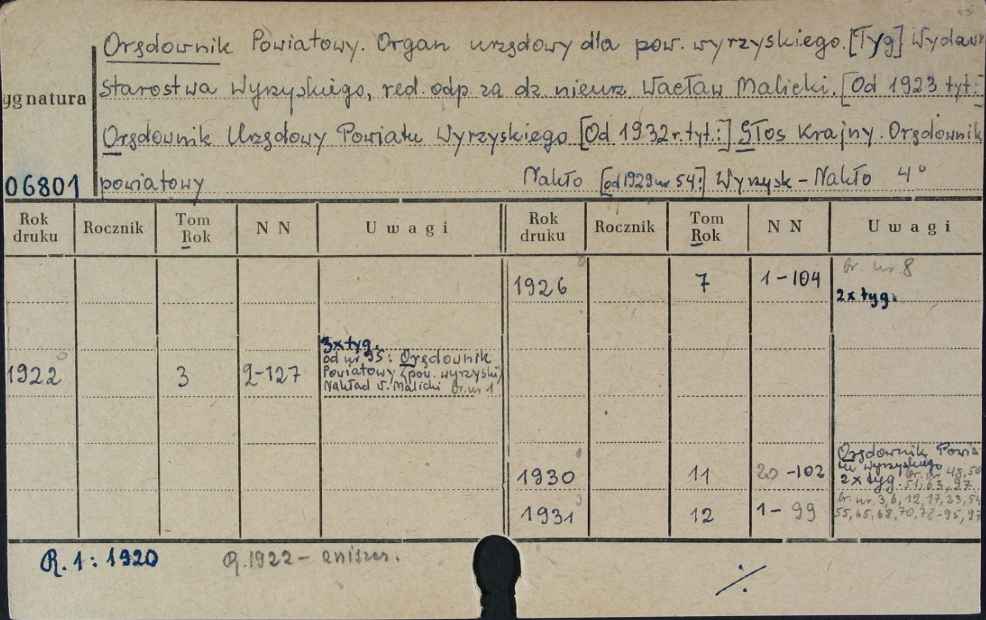 Orędownik Powiatowy. Organ urzędowy dla pow. wyrzyskiego. [Tyg] Wydawn
ygnatura
Starostwa Wyrzyskiego, red. odp. za dz. nieurz. Wacław Malicki. [Od 1923 tyt.:]
Orędownik Urzędowy Powiatu Wyrzyskiego [Od 1932 r. tyt.:] Głos Krajny. Orędownik
06801 powiatowy Nakło [od 1929 nr 54:] Wyrzysk - Nakło 4°
Rok druku Rocznik Tom Rok NN Uwagi Rok druku Rocznik Tom Rok NN Uwagi
1926 7 1-104 br. nr 8
2x tyg.
3x tyg.
1922 3 2-127 od nr 95: Orędownik
Powiatowy (pow. wyrzyski)
Nakład W. Malicki br. nr 1
Orędownik Powia-
tu Wyrzyskiego
1930 11 20-102 2x tyg. br. nr 48, 50
51, 63, 97.
1931 12 1-99 br. nr. 3, 6, 12, 17, 33, 54
55, 65, 68, 70, 72-95, 97
R. 1: 1920 R. 1922 - zniszcz.
·/·